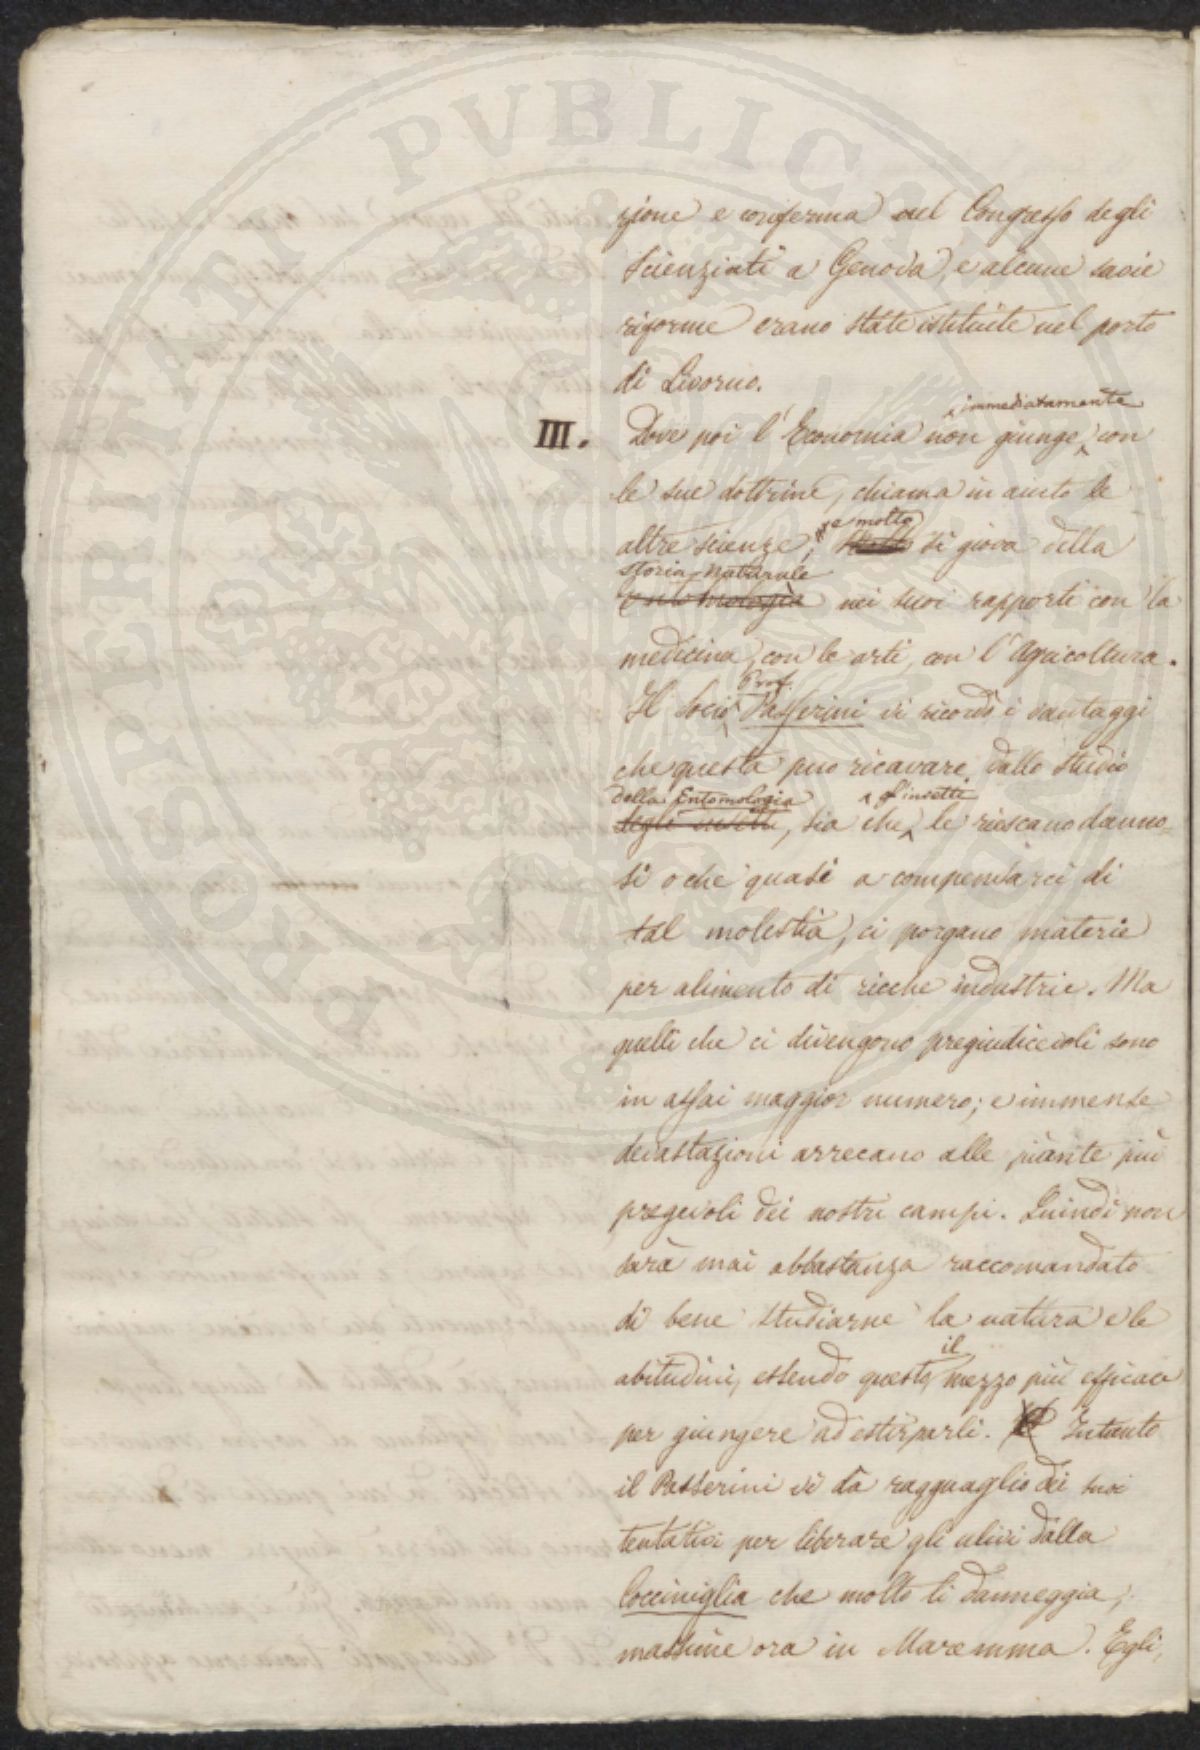 PROSPERITATI PUBLICAE
zione e conferma nel Congresso degli
Scienziati a Genova, e alcune savie
riforme erano state istituite nel porto
di Livorno.
immediatamente
III. Dove poi l'Economia non giunge con
le sue dottrine, chiama in aiuto le
e molto
altre scienze, si giova della
storia naturale
nei suoi rapporti con la
medicina, con le arti, con l'Agricoltura.
Prof.
Il Socio Passerini vi ricordò i vantaggi
che questa può ricavare dallo studio
della Entomologia gl'insetti
degli insetti, sia che le riescano danno=
si o che quasi a compensarci di
tal molestia, ci porgano materie
per alimento di ricche industrie. Ma
quelli che ci divengono pregiudicevoli sono
in assai maggior numero; e immense
devastazioni arrecano alle piante più
pregevoli dei nostri campi. Quindi non
sarà mai abbastanza raccomandato
di bene studiarne la natura e le
il
abitudini, essendo questo mezzo più efficace
per giungere ad estirparli. Intanto
il Passerini vi dà ragguaglio dei suoi
tentativi per liberare gli ulivi dalla
Cocciniglia che molto li danneggia,
massime ora in Maremma. Egli,